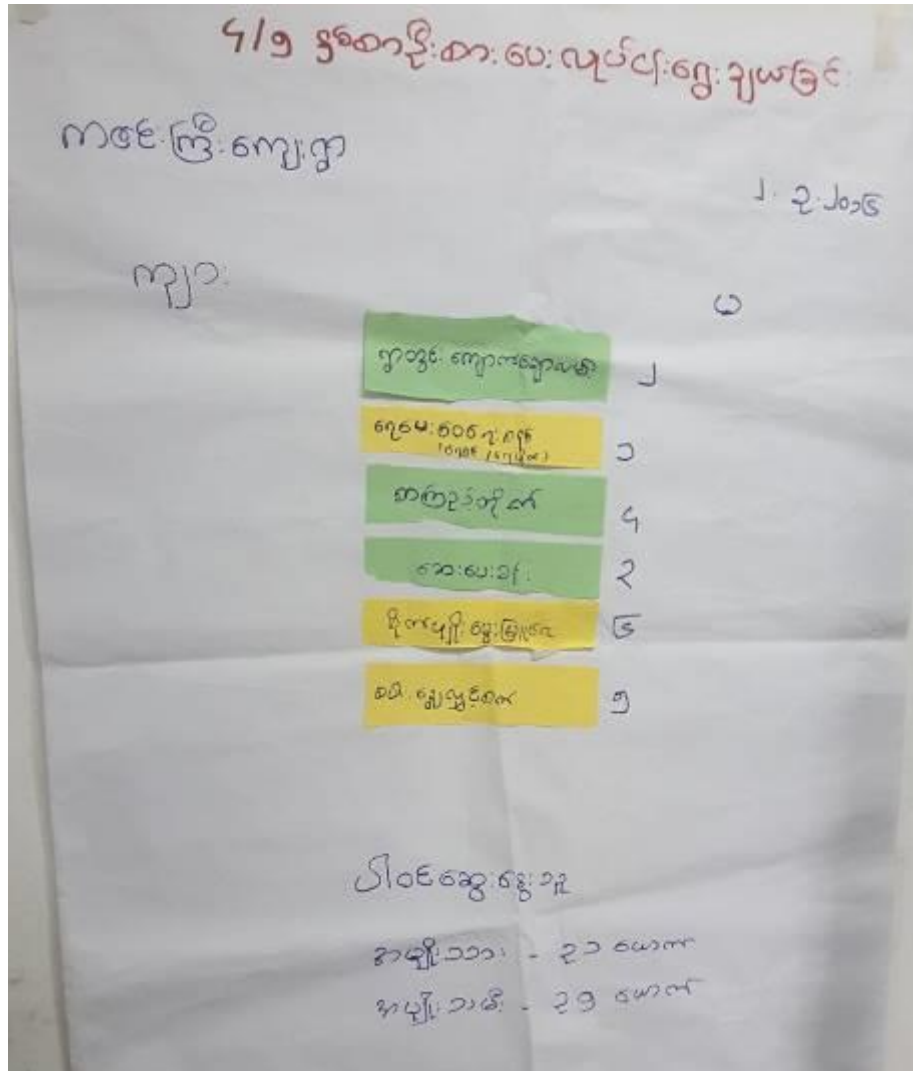 ၄/၅ နှစ်တာဦးစားပေးလုပ်ငန်းရွေးချယ်ခြင်း
ကဇင်းကြီးကျေးရွာ
၂.၃.၂၀၁၆
ကျား
မ
ရွာတွင်း ကျောက်ချောလမ်း ၂
၁
စာကြည့်တိုက် ၄
ဆေးပေးခန်း ၃
စိုက်ပျိုးမွေးမြူရေး ၆
စပါးချွေလှေ့စက် ၅
ပါဝင်ဆွေးနွေးသူ
အမျိုးသား - ၃၁ ယောက်
အမျိုးသမီး - ၃၅ ယောက်